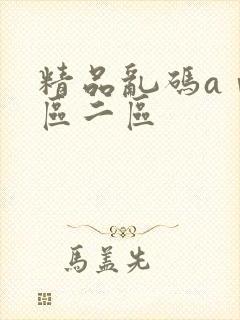 精品亂碼a
區二區
馬蓋先